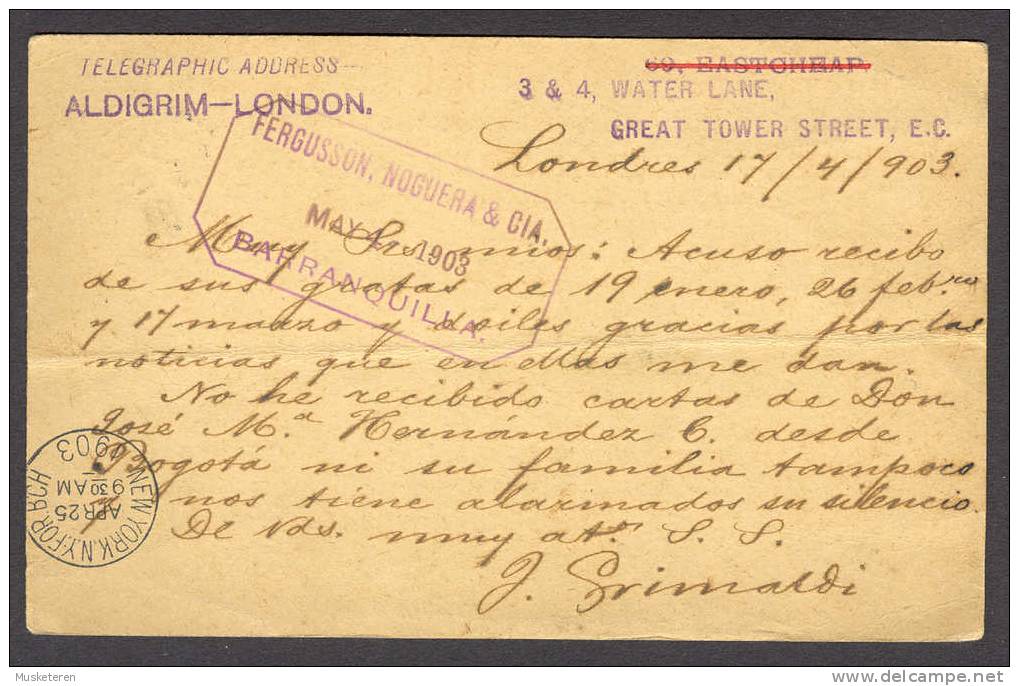 TELEGRAPHIC ADDRESS—
ALDIGRIM—LONDON.
69, EASTCHEAP.
3 & 4, WATER LANE,
GREAT TOWER STREET, E.C.
Londres 17/4/903.
FERGUSSON, NOGUERA & CIA.
MAY 1903
BARRANQUILLA.
Muy Sres mios: Acuso recibo
de sus gratas de 19 enero, 26 febro
y 17 marzo y doiles gracias por las
noticias que en ellas me dan.
No he recibido cartas de Don
José Ma Hernández C. desde
Bogotá ni su familia tampoco
y nos tiene alarmados su silencio.
De Vds. muy ato S. S.
J. Grimaldi
NEW YORK. N.Y. FOR. BCH
APR 25
930 AM
1903
Musketeren
delcampe.net